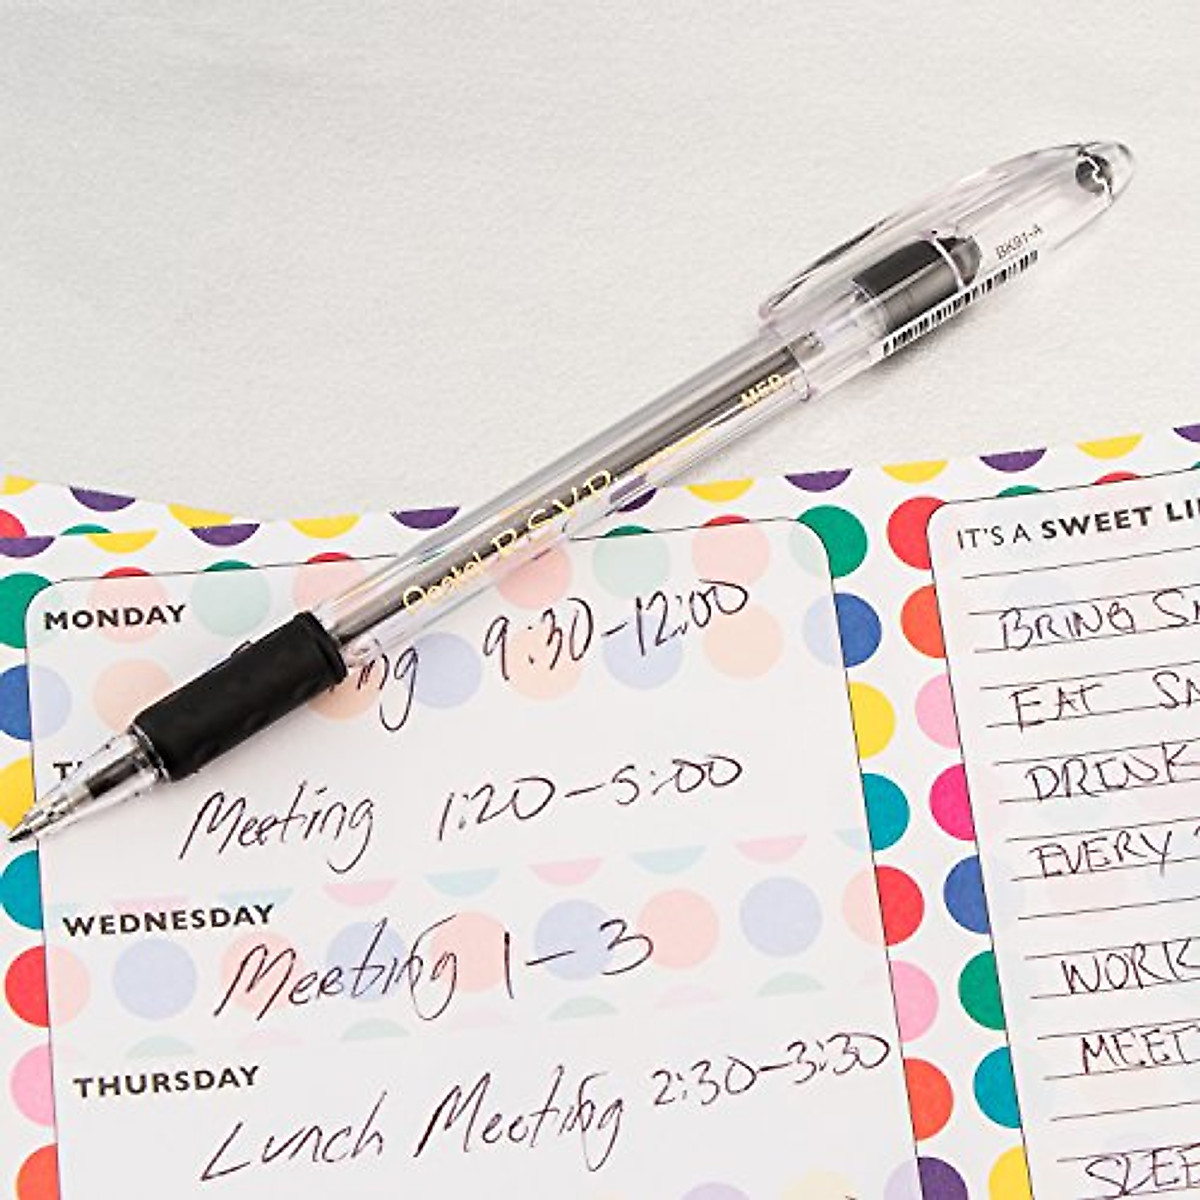 BK91-A
MED
Pentel R.S.V.P.
MONDAY
9:30-12:00
Meeting 1:20-5:00
WEDNESDAY
Meeting 1-3
THURSDAY
Lunch Meeting 2:30-3:30
IT'S A SWEET
BRING
EAT
DRINK
EVERY
WORK